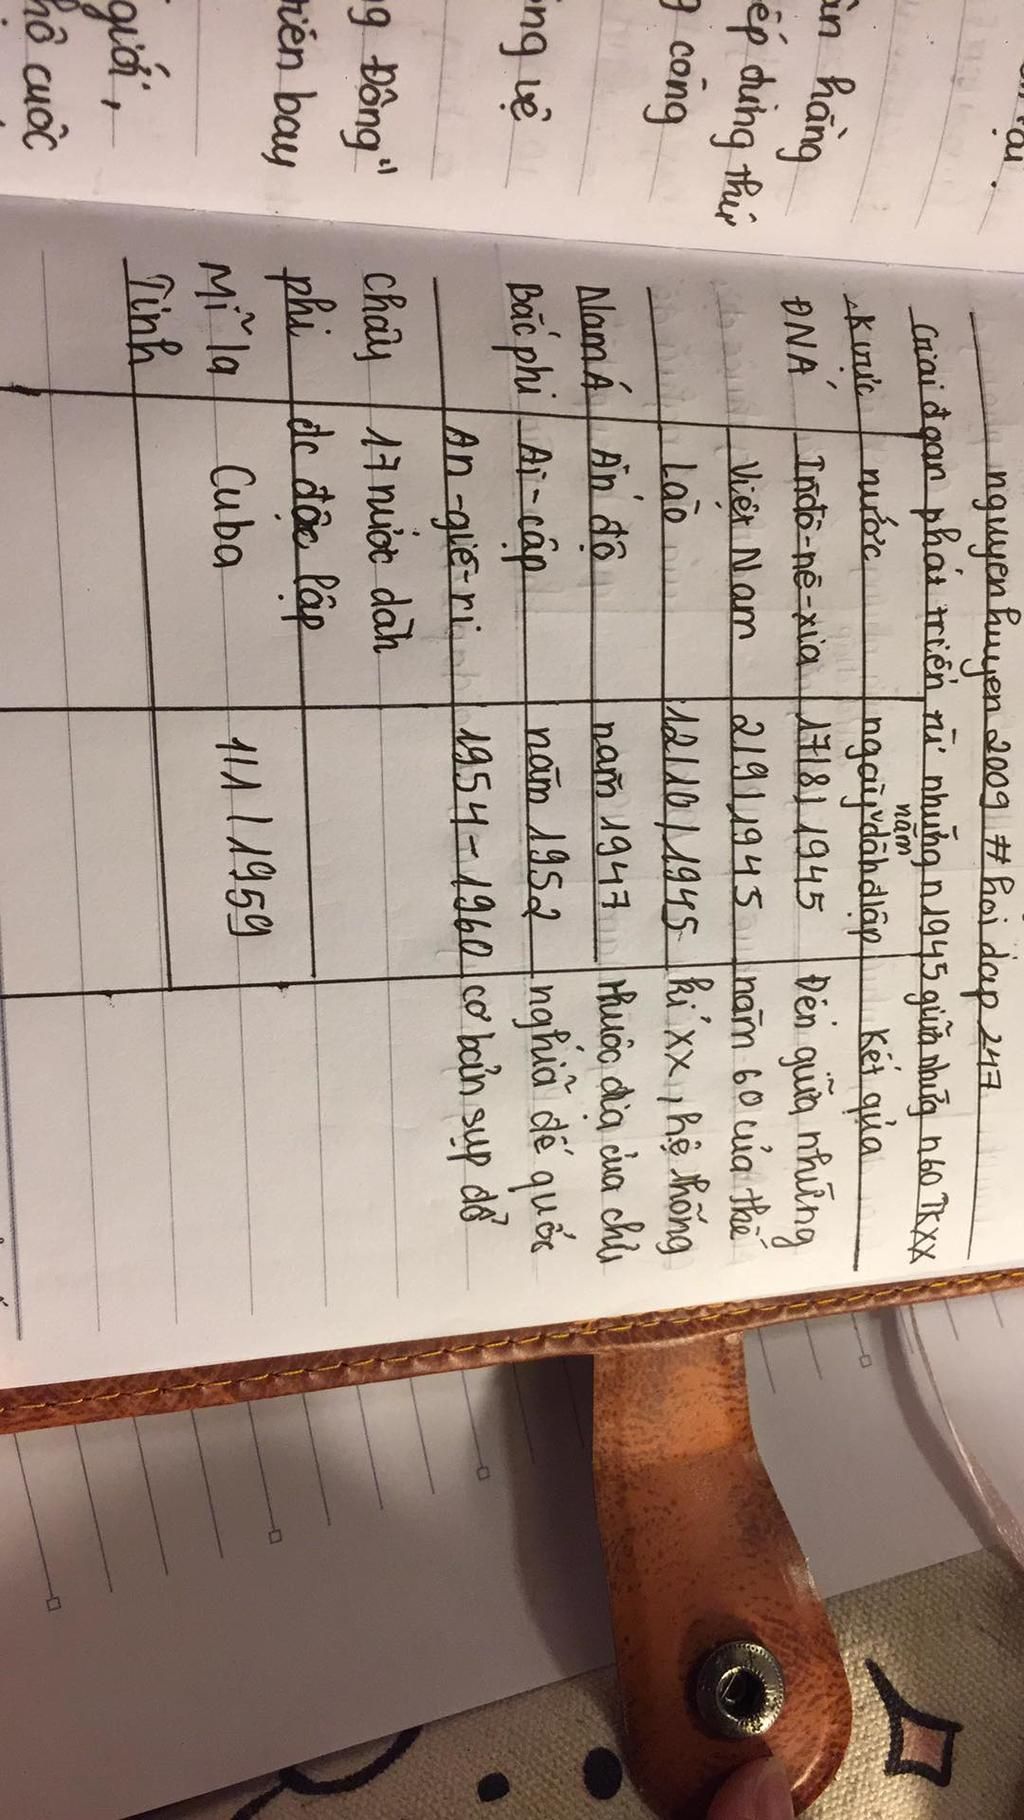 nguyenhuyen2009 # hoi dap 247
Giai đoạn phát triển từ những n1945 giữa những n60 TKXX
năm
Kvực nước ngày dành đlập Kết qủa
ĐNÁ Inđô-nê-xia 17/8/1945 Đến giữa những
Việt Nam 2/9/1945 năm 60 của thế
Lào 12/10/1945 kỉ XX, hệ thống
Nam Á Ấn độ năm 1947 thuộc địa của chủ
Bắc phi Ai-cập năm 1952 nghĩa đế quốc
An-giê-ri 1954-1960 cơ bản sụp đổ
châu 17 nước dàh
phi đc độc lập
Mĩ la Cuba 1/1/1959
Tinh
ân hàng
ếp dựng thứ
g công
ống vệ
g Đông"
riên bay
giới,
hô cuôc